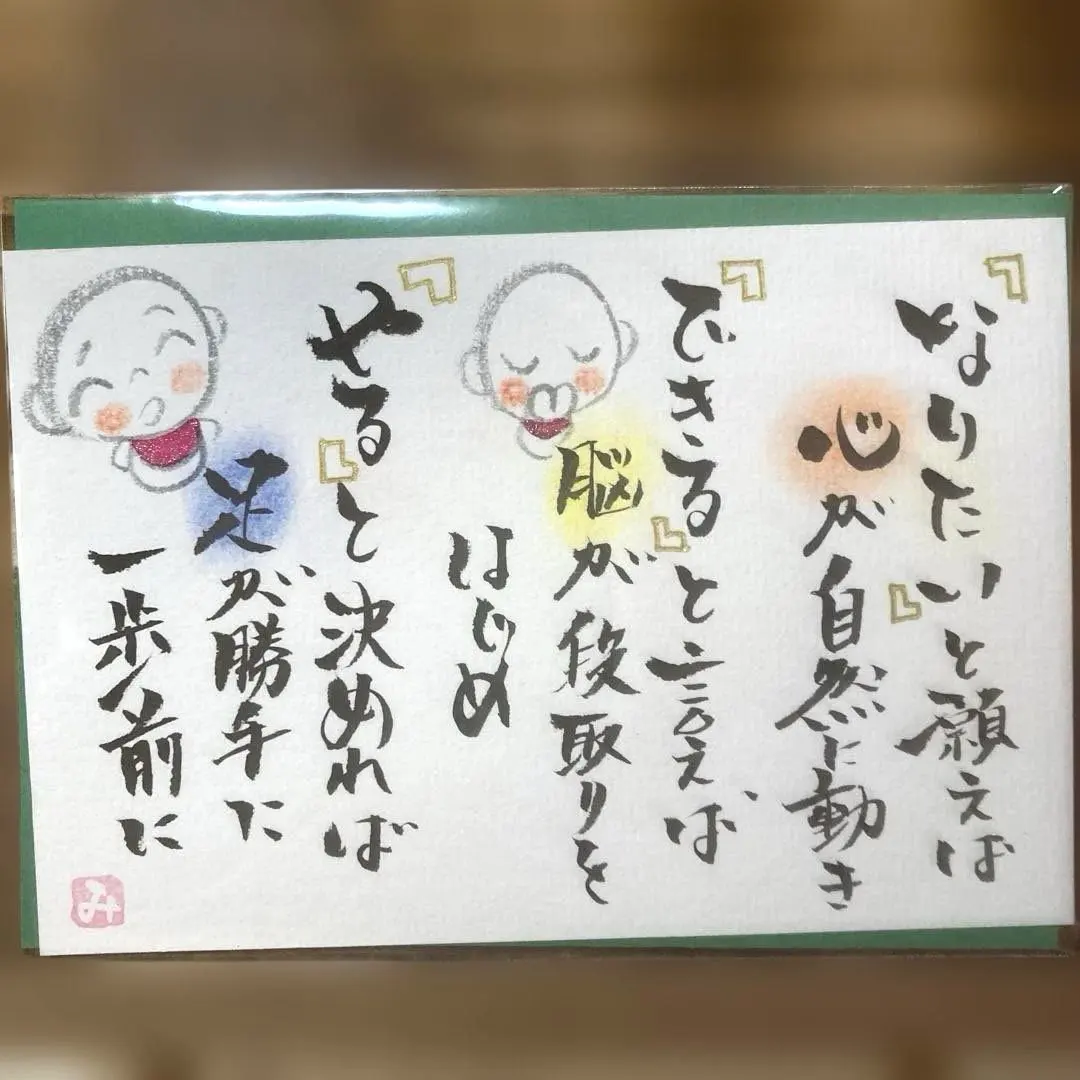 『なりたい』と願えば
心が自然に動き
『できる』と言えば
脳が段取りを
はじめ
『やる』と決めれば
足が勝手に
一歩前に
み